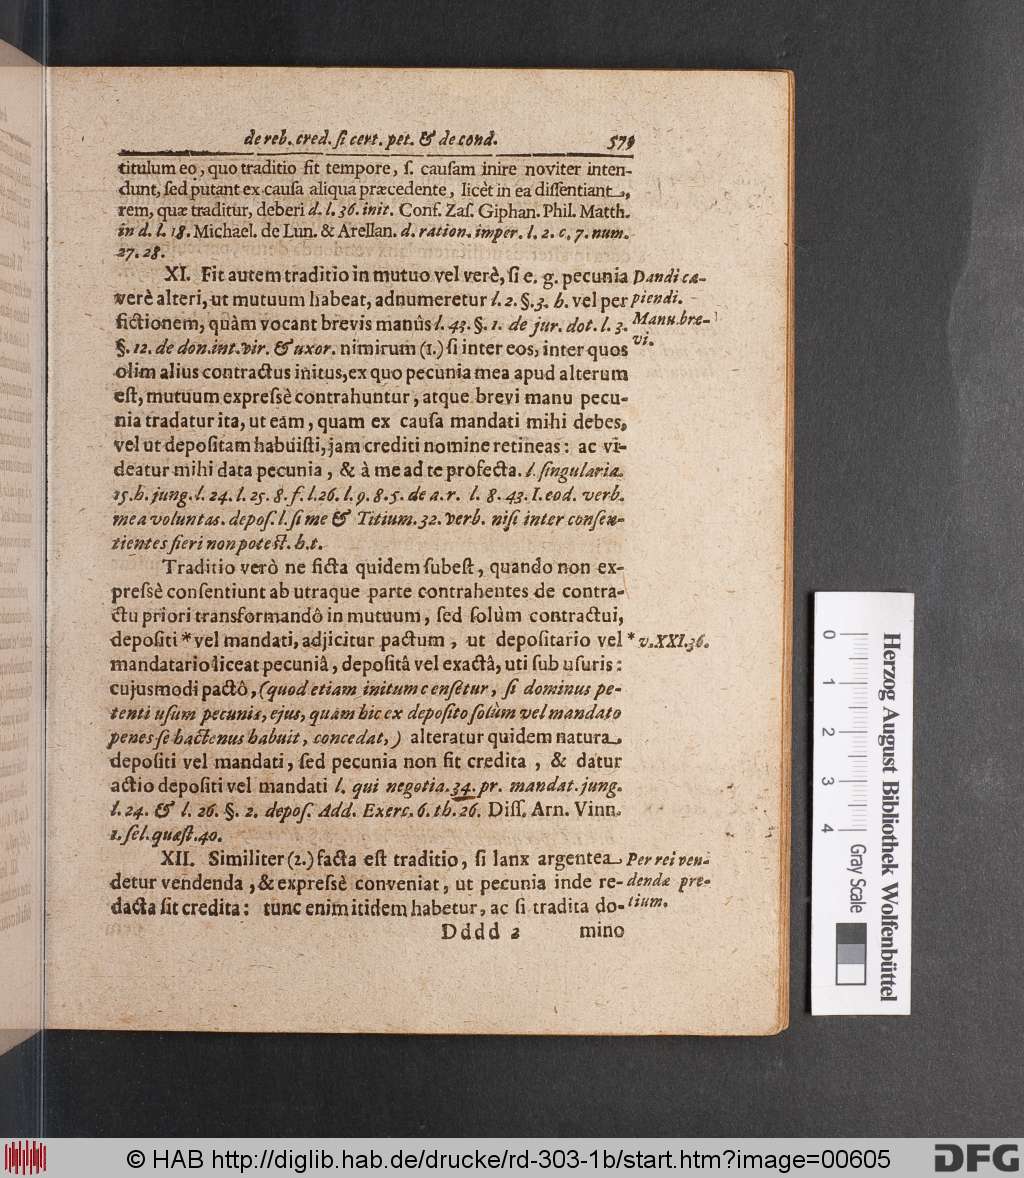 de reb. cred. ſi cert. pet. & de cond. 579
titulum eo, quo traditio fit tempore, ſ. cauſam inire noviter inten-
dunt, ſed putant ex cauſa aliqua præcedente, licèt in ea diſſentiant,
rem, quæ traditur, deberi d. l. 36. init. Conf. Zaſ. Giphan. Phil. Matth.
in d. l. 18. Michael. de Lun. & Arellan. d. ration. imper. l. 2. c. 7. num.
27. 28.
XI. Fit autem traditio in mutuo vel verè, ſi e. g. pecunia
verè alteri, ut mutuum habeat, adnumeretur l. 2. §. 3. h. vel per
fictionem, quàm vocant brevis manûs l. 43. §. 1. de jur. dot. l. 3.
§. 12. de don. int. vir. & uxor. nimirum (1.) ſi inter eos, inter quos
olim alius contractus initus, ex quo pecunia mea apud alterum
eſt, mutuum expreſsè contrahuntur, atque brevi manu pecu-
nia tradatur ita, ut eam, quam ex cauſa mandati mihi debes,
vel ut depoſitam habuiſti, jam crediti nomine retineas: ac vi-
deatur mihi data pecunia, & à me ad te profecta. l. ſingularia.
15. h. jung. l. 24. l. 25. §. f. l. 26. l. 9. §. 5. de a. r. l. §. 43. I. eod. verb.
mea voluntas. depoſ. l. ſi me & Titium. 32. verb. niſi inter conſen-
tientes fieri non poteſt. h. t.
Dandi ca-
piendi.
Manu bre-
vi.
Traditio verò ne ficta quidem ſubeſt, quando non ex-
preſsè conſentiunt ab utraque parte contrahentes de contra-
ctu priori transformandô in mutuum, ſed ſolùm contractui,
depoſiti * vel mandati, adjicitur pactum, ut depoſitario vel
mandatario liceat pecuniâ, depoſitâ vel exactâ, uti ſub uſuris:
cujusmodi pactô, (quod etiam initum cenſetur, ſi dominus pe-
tenti uſum pecuniæ, ejus, quam hic ex depoſito ſolùm vel mandato
penes ſe hactenus habuit, concedat,) alteratur quidem natura
depoſiti vel mandati, ſed pecunia non fit credita, & datur
actio depoſiti vel mandati l. qui negotia. 34. pr. mandat. jung.
l. 24. & l. 26. §. 2. depoſ. Add. Exerc. 6. th. 26. Diſſ. Arn. Vinn.
1. ſel. quæſt. 40.
* v. XXI. 36.
XII. Similiter (2.) facta eſt traditio, ſi lanx argentea
detur vendenda, & expreſsè conveniat, ut pecunia inde re-
dacta ſit credita: tunc enim itidem habetur, ac ſi tradita do-
Per rei ven-
dendæ pre-
tium.
Dddd 2 mino
0 1 2 3 4
Herzog August Bibliothek Wolfenbüttel
Gray Scale
© HAB http://diglib.hab.de/drucke/rd-303-1b/start.htm?image=00605
DFG